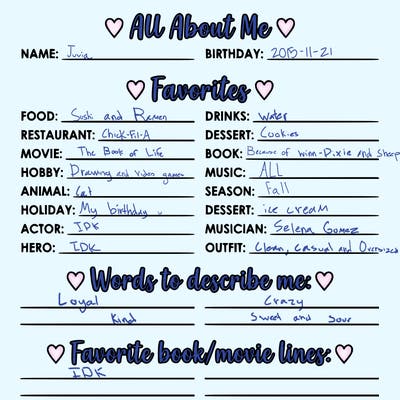 All About Me
NAME: Juvia BIRTHDAY: 2015-11-21
Favorites
FOOD: Sushi and Ramen DRINKS: water
RESTAURANT: Chick-Fil-A DESSERT: Cookies
MOVIE: The Book of Life BOOK: Because of winn-Dixie and Sharp
HOBBY: Drawing and Video games MUSIC: ALL
ANIMAL: Cat SEASON: Fall
HOLIDAY: My birthday DESSERT: ice cream
ACTOR: IDK MUSICIAN: Selena Gomez
HERO: IDK OUTFIT: Clean, Casual and Oversized
Words to describe me:
Loyal Crazy
Kind Sweet and Sour
Favorite book/movie lines:
IDK